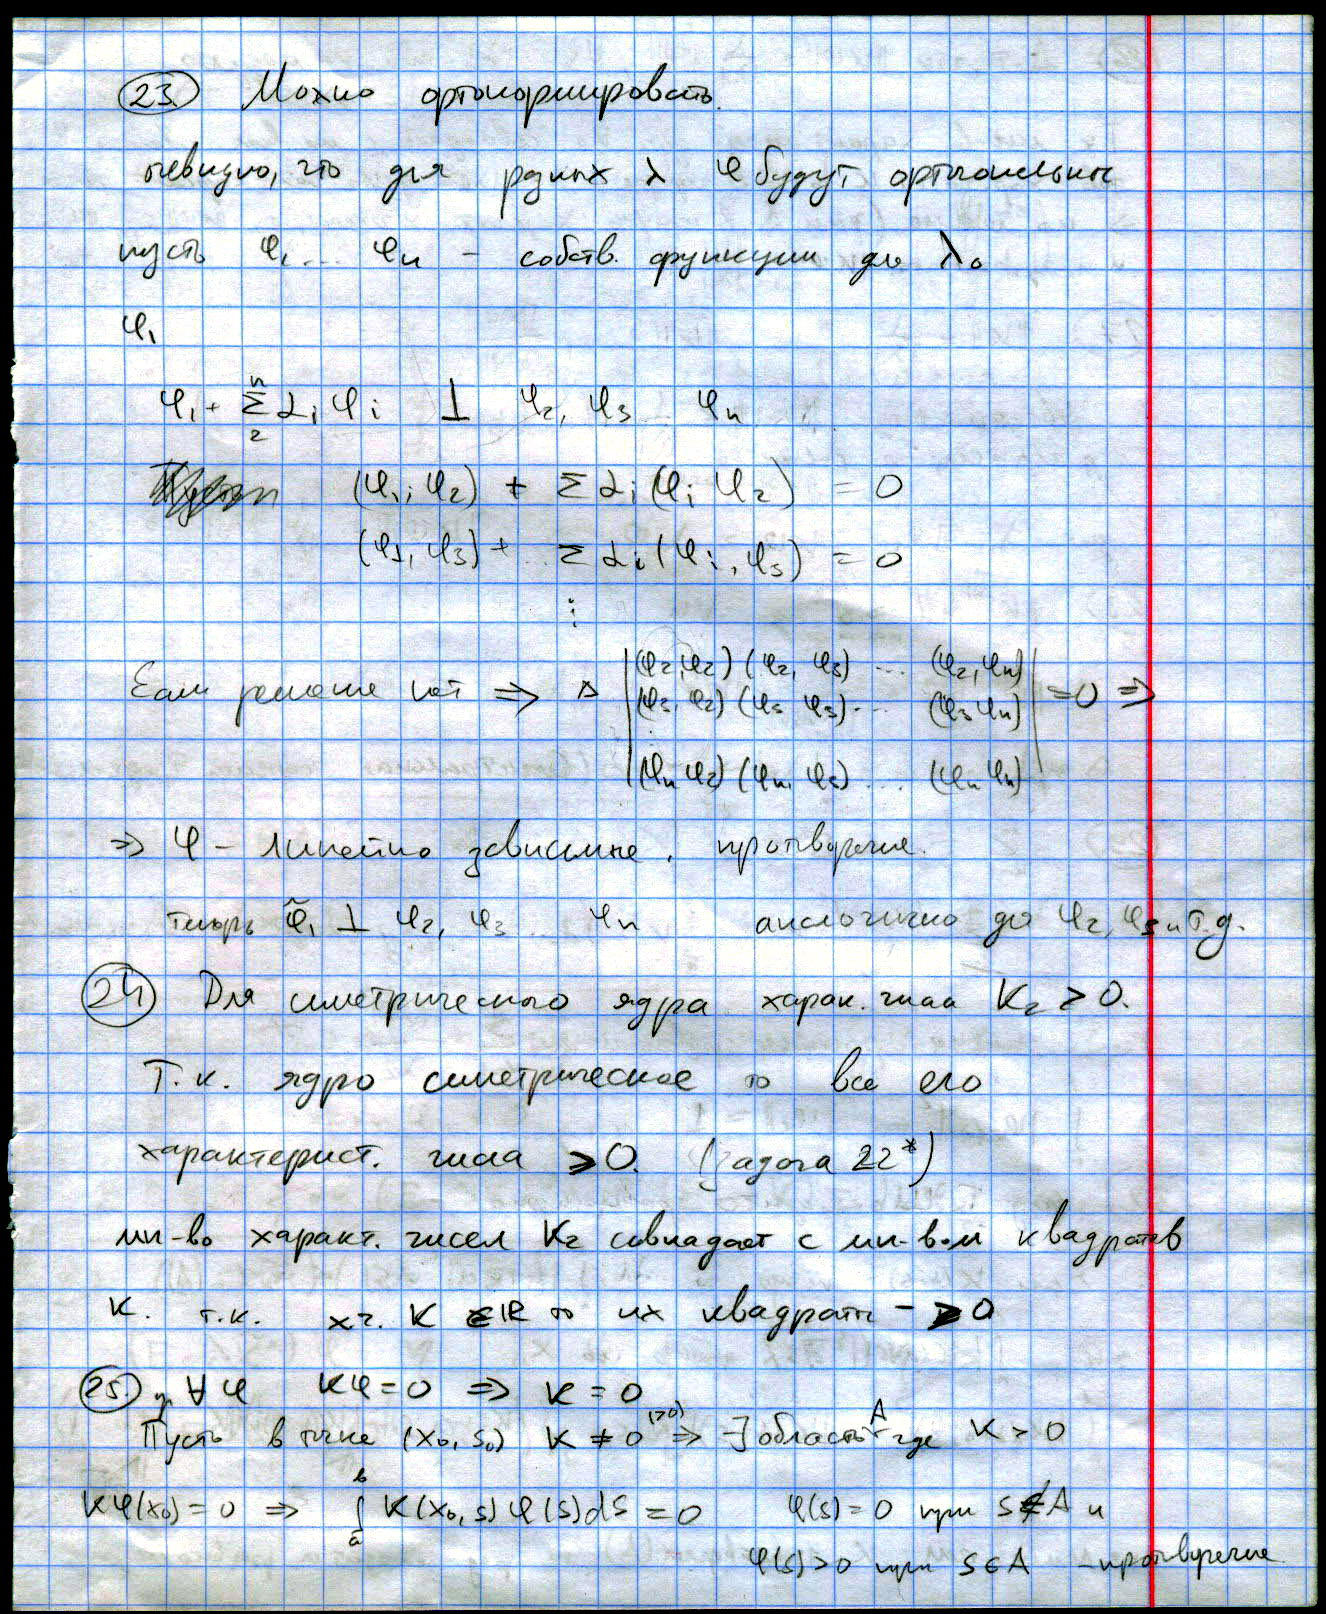 23. Можно ортонормировать.
очевидно, что для разных λ φ будут ортогональны
пусть φ₁ ... φₙ – собств. функции для λ₀
φ₁
φ₁ + Σ₂ⁿ αᵢ φᵢ ⊥ φ₂, φ₃ ... φₙ
(φ₁; φ₂) + Σ αᵢ (φᵢ φ₂) = 0
(φ₁, φ₃) + Σ αᵢ (φᵢ, φ₃) = 0
⋮
Если решение нет ⇒ Δ |(φ₂,φ₂) (φ₂, φ₃) ... (φ₂, φₙ)
(φ₃, φ₂) (φ₃ φ₃) ... (φ₃ φₙ)| = 0 ⇒
(φₙ φ₂) (φₙ, φ₃) ... (φₙ φₙ)
⇒ φ – линейно зависимые, противоречие.
теперь φ̃₁ ⊥ φ₂, φ₃ ... φₙ аналогично до φ₂, φ₃ и т.д.
24 Для симетрического ядра харак. числа K₂ > 0.
Т.к. ядро симетрическое то все его
характерист. числа ⩾ 0. (задача 22*)
мн-во характ. чисел K₂ совпадает с мн-вом квадратов
K. т.к. х.ч. K ∈ ℝ то их квадраты – ⩾ 0
25 ∀ φ Kφ = 0 ⇒ K = 0
Пусть в точке (x₀, s₀) K ≠ 0 (>0) ⇒ ∃ область A где K > 0
Kφ(x₀) = 0 ⇒ ∫ₐᵇ K(x₀, s) φ(s) ds = 0 φ(s) = 0 при s ∉ A и
φ(s) > 0 при s ∈ A – противоречие